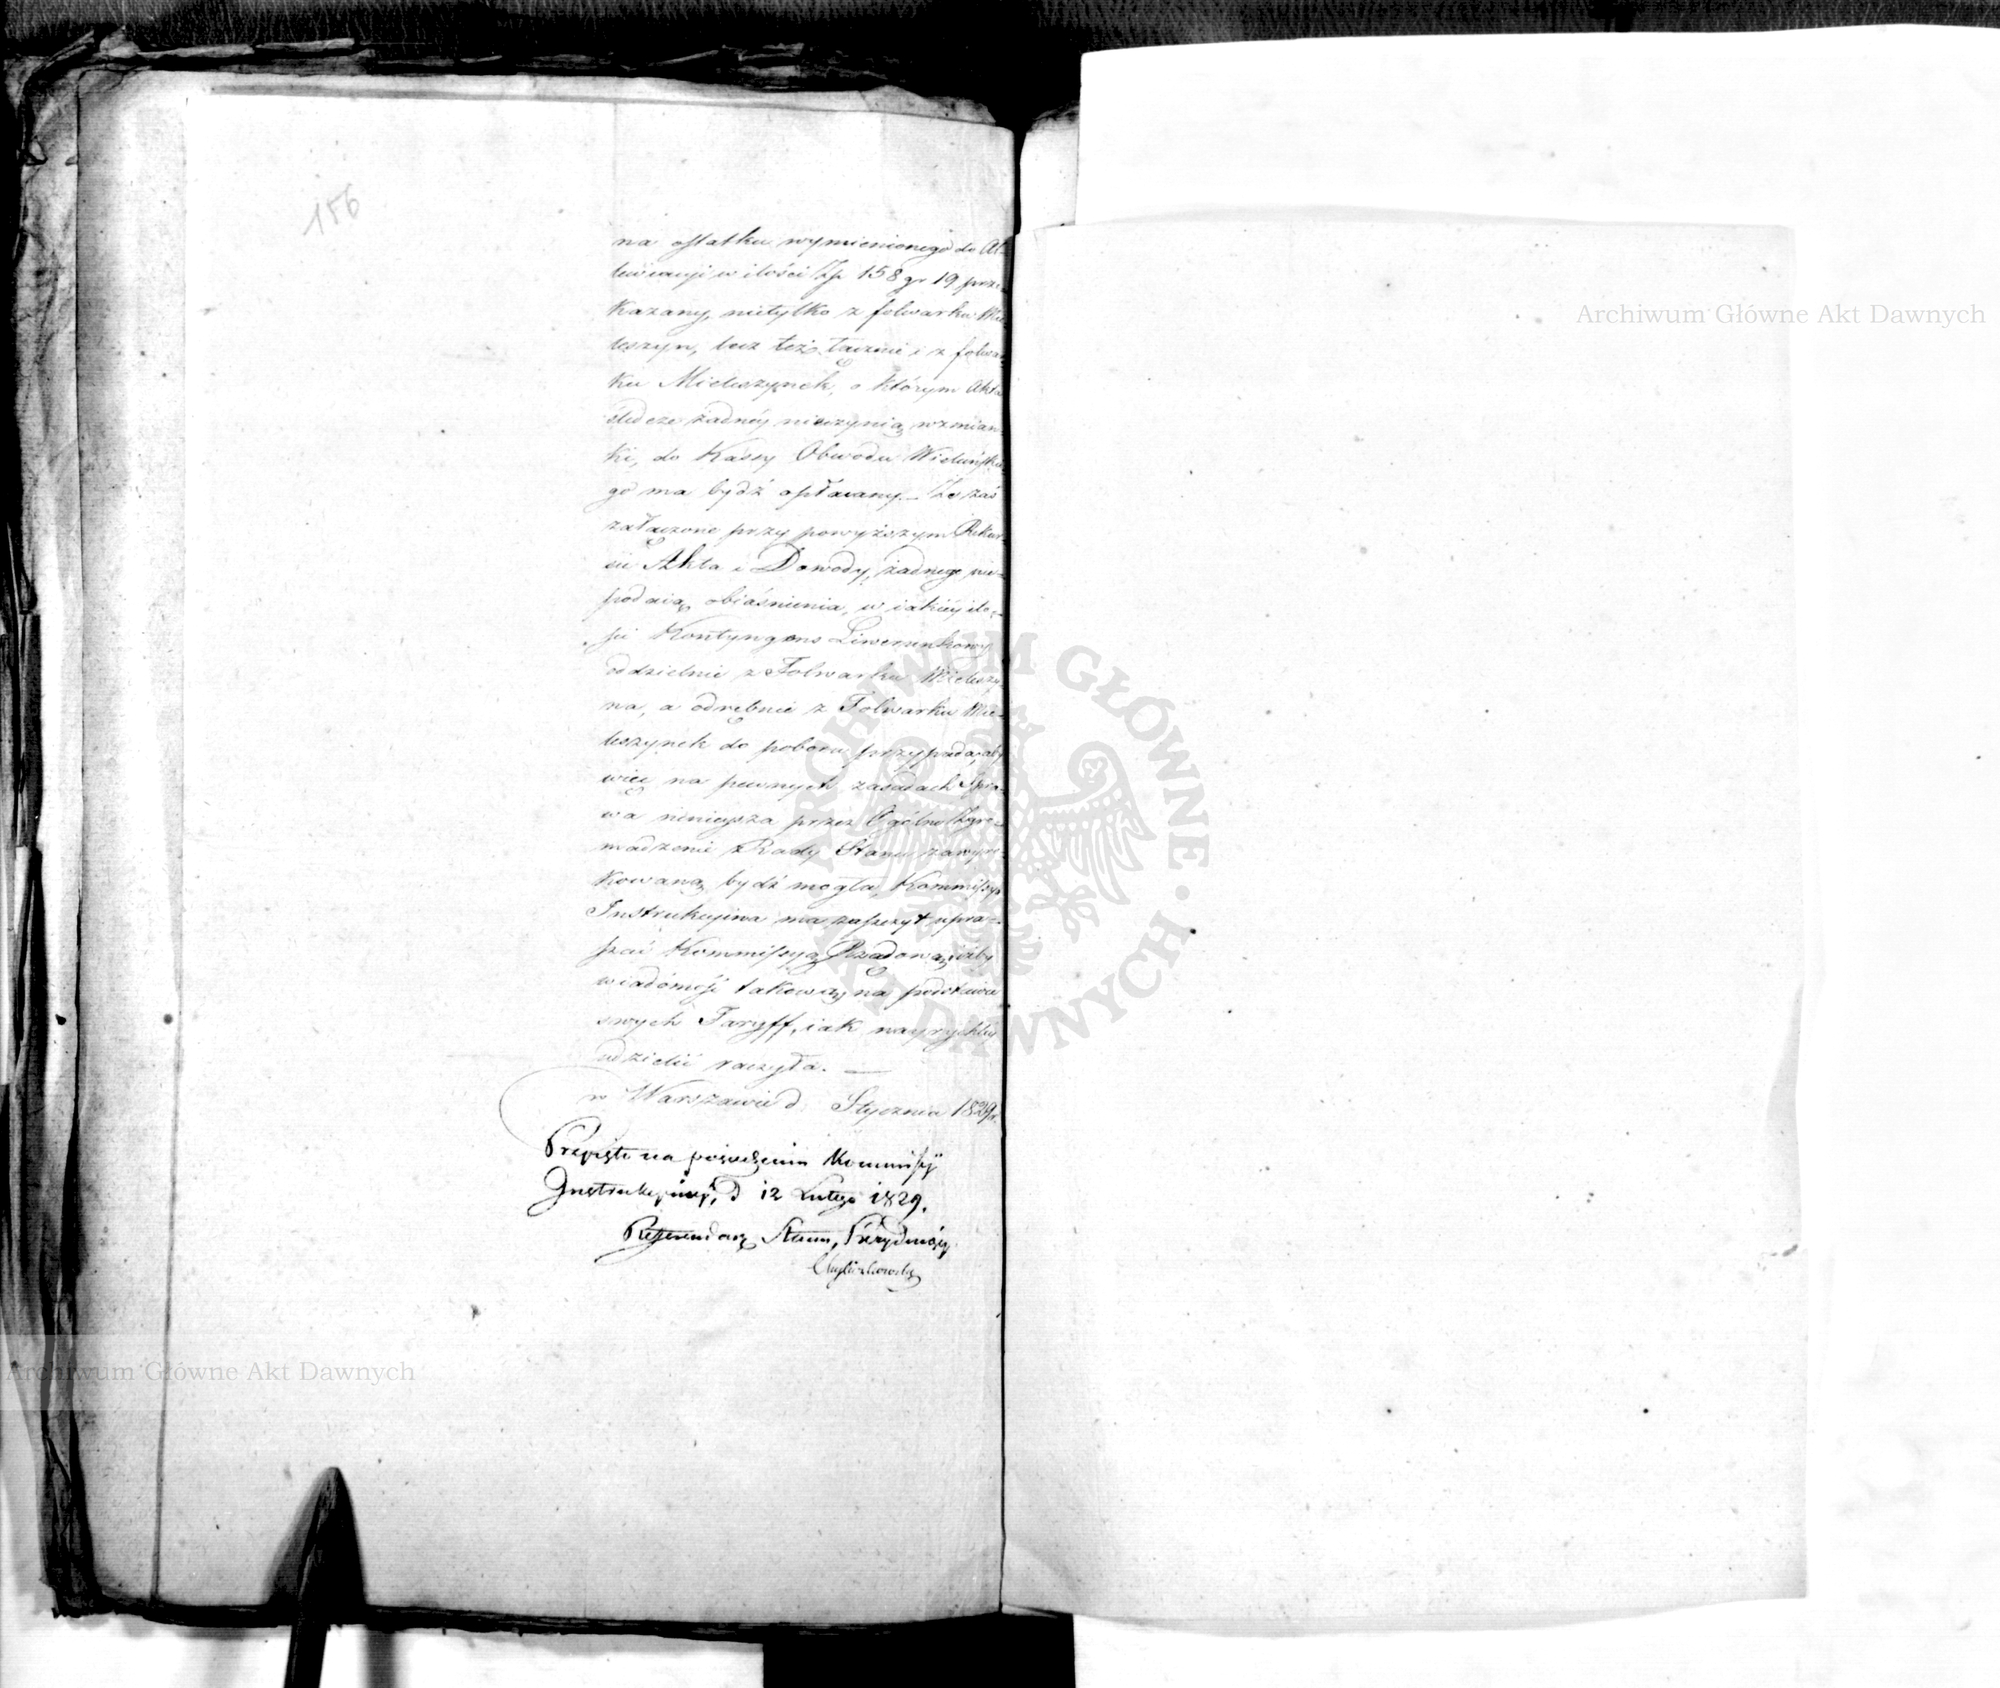 156
na ostatku wymienionego do Al-
lewiacyi w ilości Złp 158 gr 19 prze-
kazany, nietylko z folwarku Mie-
leszyn, lecz też łącznie i z folwar-
ku Mieleszynek, o którym Akta
śledcze żadnéy nieczynią wzmian-
ki, do Kassy Obwodu Wieluńskie-
go ma bydź opłacany. — Że zaś
załączone przy powyższym Rekur-
sie Akta i Dowody, żadnego nie-
podaią obiaśnienia, w iakiéy ilo-
ści Kontyngens Liwerunkowy
oddzielnie z Folwarku Mieleszy-
na, a odrębnie z Folwarku Mie-
leszynek do poboru przypada, aby
więc na pewnych zasadach Spra-
wa ninieysza przez Ogólne Zgro-
madzenie Rady Stanu zawyro-
kowaną bydź mogła, Kommissya
Instrukcyina ma zaszczyt upra-
szać Kommissyą Rządową, iżby
wiadomość takową na podstawie
swych Taryff, iak nayrychléy
udzielić raczyła. —
w Warszawie d. Stycznia 1829 r.
Przyięto na posiedzeniu Kommissyi
Instrukcyinéy, d 12 Lutego 1829.
Referendarz Stanu, Prezyduiący
Archiwum Główne Akt Dawnych
Archiwum Główne Akt Dawnych
ARCHIWUM GŁÓWNE · AKT DAWNYCH ·